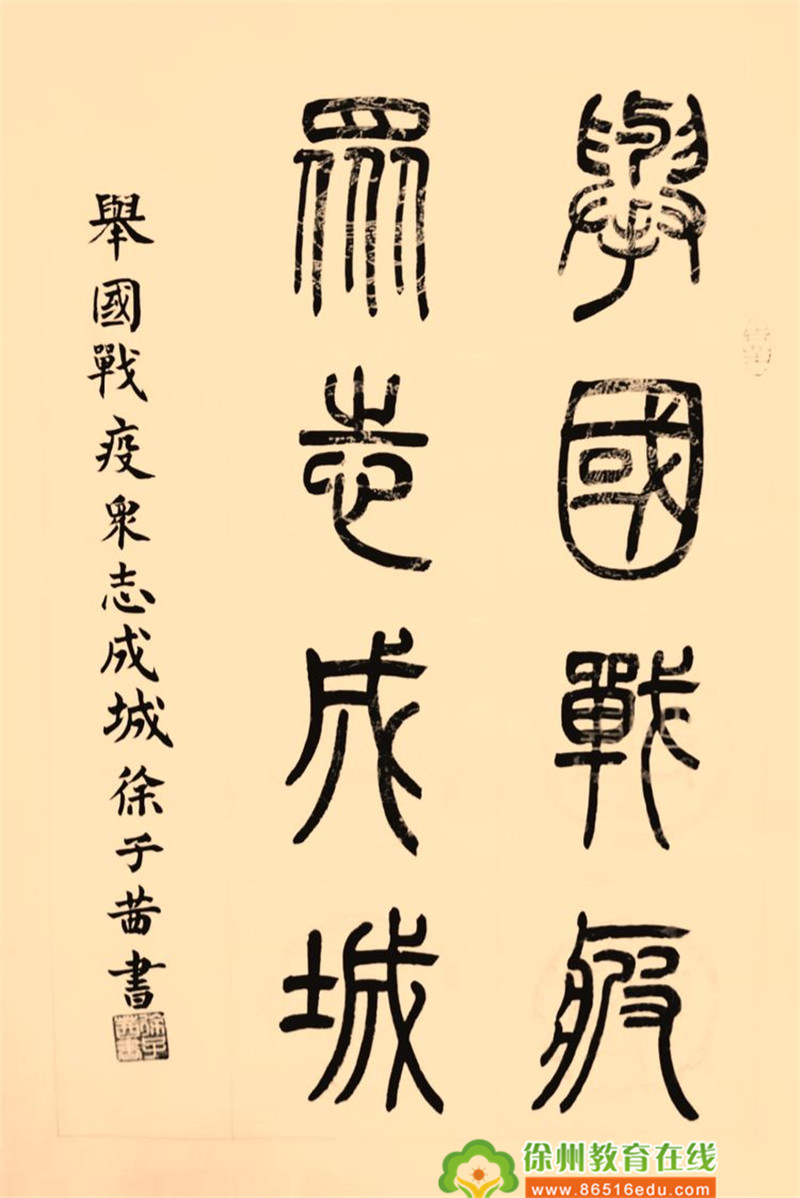 舉國戰疫
眾志成城
舉國戰疫衆志成城徐子茜書
徐州教育在线
www.86516edu.com